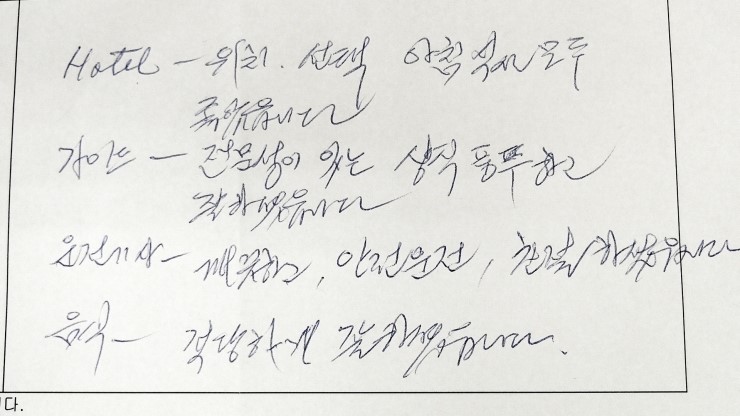 Hotel - 위치. 선택 아침 식사 모두
좋았읍니다
가이드 - 전문성이 있는 상식 풍부하고
잘하셨읍니다
운전기사 - 깨끗하고, 안전운전, 친절하셨읍니다
음식 - 적당하게 잘하셨읍니다.
다.